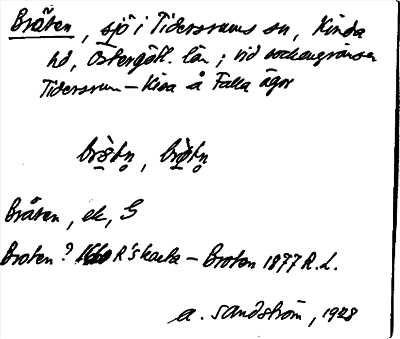 Bråten, sjö i Tidersrums sn, Kinda
hd, Östergötl. län; vid sockengränsen
Tidersrum–Kisa å Falla ägor
brø̀tn, brò̤tn
Bråten, ek, G
Broten? 1660 R's karta – Broten 1877 R.L.
A. Sandström, 1928